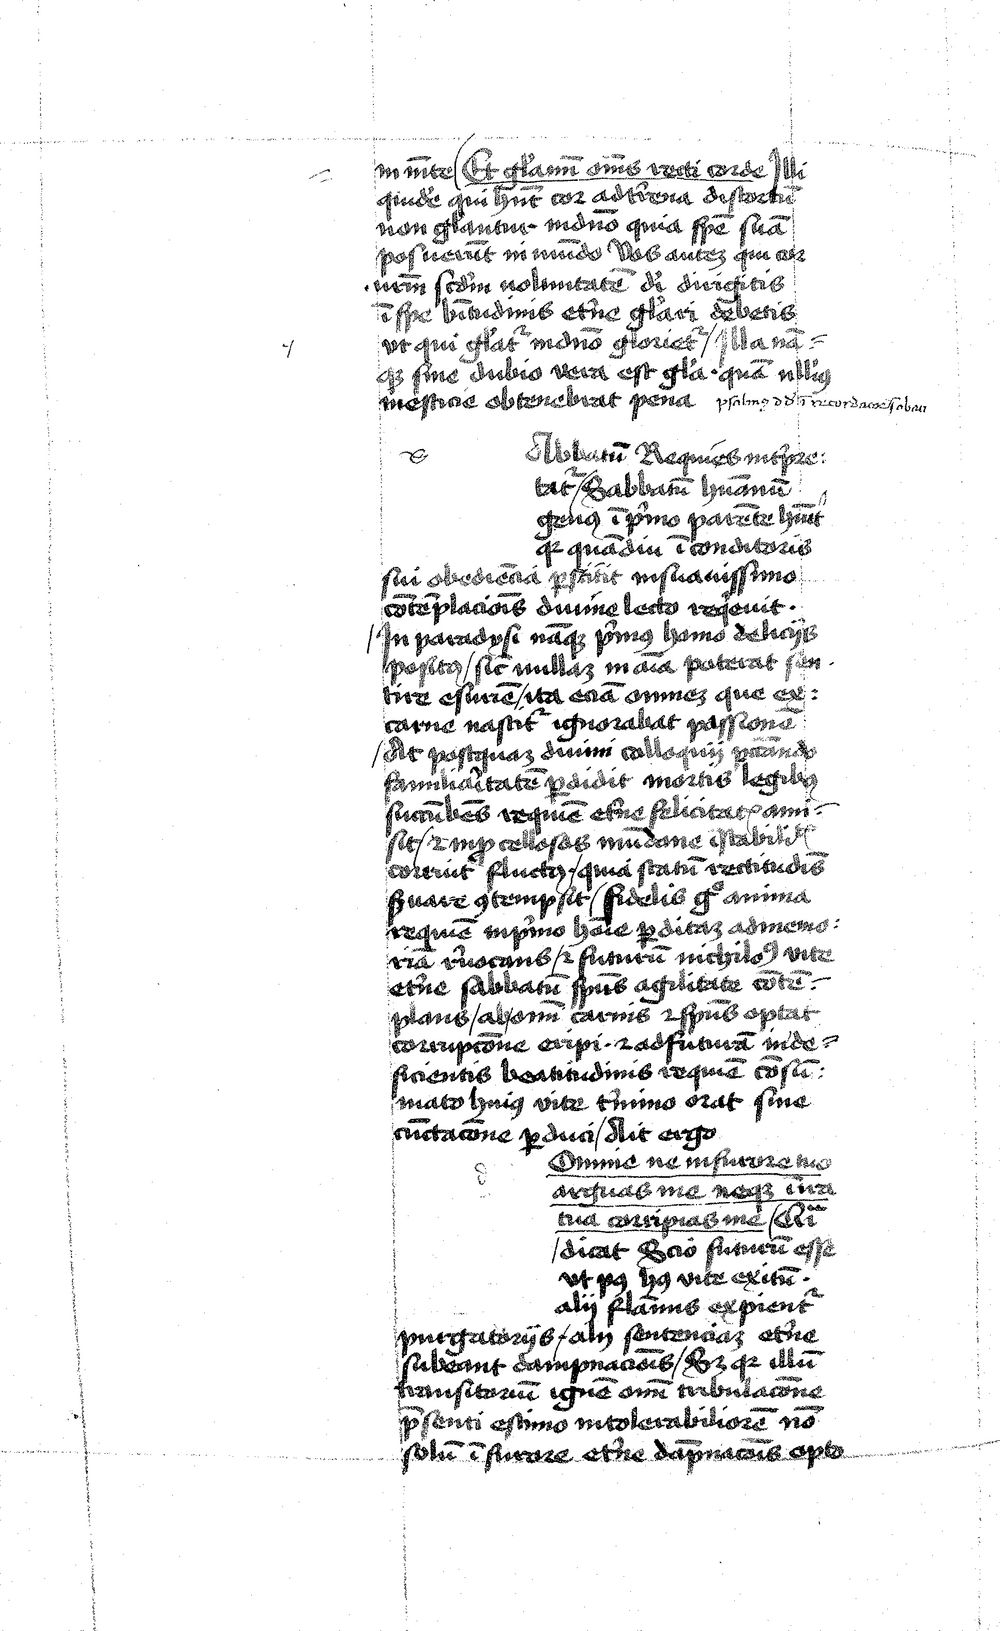 in mēte Et gl̄amī om̄s recti corde Illi
quidē qui hn̄t cor ad t̄rena distortū
non gl̄antur in dn̄o quia spē suā
posuerūt in mūdo Vos autez qui cor
vrm̄ scdm̄ voluntatē dī dirigitis
ī spe btītudinis et̄ne gl̄ari dēbetis
vt qui gl̄at᷑ in dn̄o gloriet᷑ / Illa nā =
qꝫ sine dubio vera est gl̄a · quā nulliꝰ
mesticie obtenebrat pena psalmꝰ dd ī recordacōe sabati
Abbatū Requies int̄pre :
tat᷑ / Sabbatū humanū
genꝰ ī pͥmo parēte hūit
qr quādiu ī conditoris
sui obediēcia ꝑstitit in suauissimo
cōtēplaciōis diuine lecto reqͥeuit ·
/ In paradysi nāqꝫ pͥmꝰ homo delicijs
positꝰ / sic̄ nullaz in aīa poterat sen ·
tire esuriē / ita eciā omnez que ex :
carne nascit᷑ ignorabat passionē
/ At postquaz diuini colloquij peccādo
familiaritatē ꝑdidit mortis legibꝰ
sucūbēs requiē et̄ne felicitatꝭ ami =
sit / ⁊ in ꝓcellosos mūdane īstabilitꝭ
corruit fluctꝰ / quia statū rectitudīs
ẜuare ꝯtempsit / fidelis gͦ anima
requiē in pͥmo hōie ꝑditaz ad memo :
riā r̄uocans / ⁊ futurū nichiloꝰ vite
et̄ne sabbatū sp̄us agilitate cōtē =
plans / ab omī carnis ⁊ sp̄us optat
corrupcōne eripi · ⁊ ad futurā inde =
ficientis beatitudinis requiē cōsū :
mato huiꝰ vite t̄mino orat sine
cūctacōne ꝑduci / Ait ergo
d Omine ne in furore tuo
arguas me neqꝫ ī ira
tua corripias me / Q̄si
/ dicat Scio futurū esse
vt pꝰ hꝰ vite exitū ·
alij flāmis expient᷑
purgatorijs / alij sentenciaz et̄ne
subeant dampnaciōis / Sꝫ qr illū
transitoriū ignē omī tribulacōne
p̄senti estimo intolerabiliorē nō
solū ī furore et̄ne dāpnaciōis opto